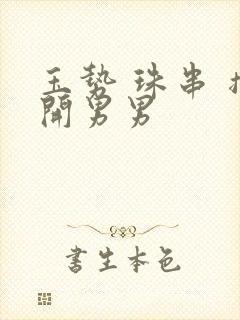 玉势 珠串
開男男
書生本色